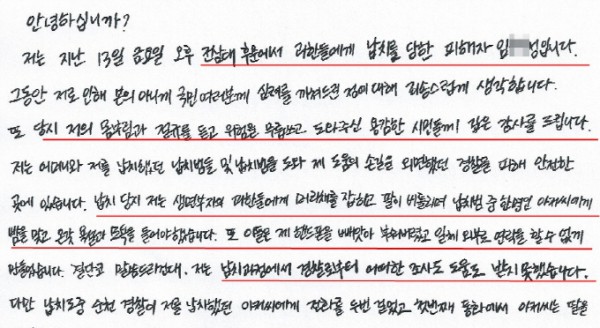 안녕하십니까?
저는 지난 13일 금요일 오후 전남대 후문에서 괴한들에게 납치를 당한 피해자 임 성입니다.
그동안 저로 인해 본의 아니게 국민여러분께 심려를 끼쳐드린 점에 대해 죄송스럽게 생각합니다.
또 당시 저의 몸부림과 절규를 듣고 위험을 무릅쓰고 도와주신 용감한 시민들께 깊은 감사를 드립니다.
저는 어머니와 저를 납치했던 납치범들 및 납치범을 도와 제 도움의 손길을 외면했던 경찰을 피해 안전한
곳에 있습니다. 납치 당시 저는 생면부지의 괴한들에게 머리채를 잡히고 팔이 비틀리며 납치범 중 한명인 아저씨에게
뺨을 맞고 온갖 욕설과 쌍욕을 들어야했습니다. 또 이들은 제 핸드폰을 빼앗아 부숴버렸고 일체 외부로 연락을 할 수 없게
만들었습니다. 결단코 말씀드리건대, 저는 납치과정에서 경찰로부터 어떠한 조사도 도움도 받지 못했습니다.
다만 납치도중 순천 경찰이 저를 납치했던 아저씨에게 전화를 두번 걸었고 첫번째 통화에서 아저씨는 딸을